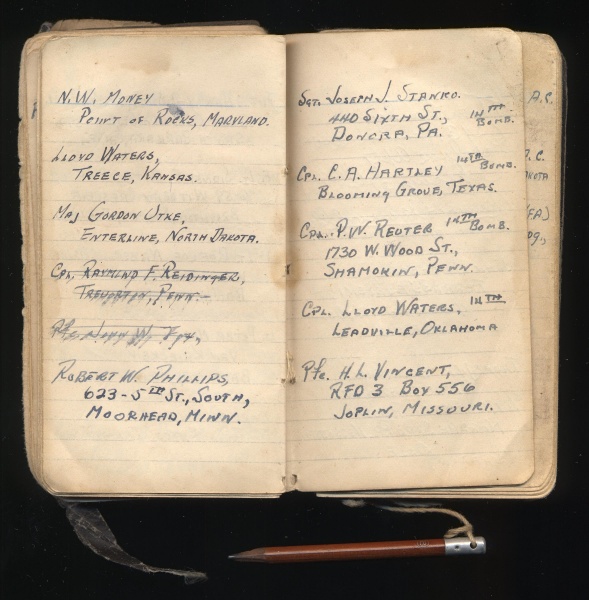 N.W. MONEY
POINT OF ROCKS, MARYLAND.
LLOYD WATERS,
TREECE, KANSAS.
MAJ GORDON UTKE,
ENTERLINE, NORTH DAKOTA.
CPL. RAYMOND F. REIDINGER,
TREVORTON, PENN.
Pfc. John W. Fox,
ROBERT W. PHILLIPS,
623-5TH ST., SOUTH,
MOORHEAD, MINN.
SGT. JOSEPH J. STANKO.
440 SIXTH ST., 14TH
DONORA, PA. BOMB.
CPL. E.A. HARTLEY 14TH BOMB.
BLOOMING GROVE, TEXAS.
CPL. P.W. REUTER 14TH BOMB.
1730 W. WOOD ST.,
SHAMOKIN, PENN.
CPL. LLOYD WATERS, 14TH
LEADVILLE, OKLAHOMA
Pfc. H.L. VINCENT,
RFD 3 BOX 556
JOPLIN, MISSOURI.